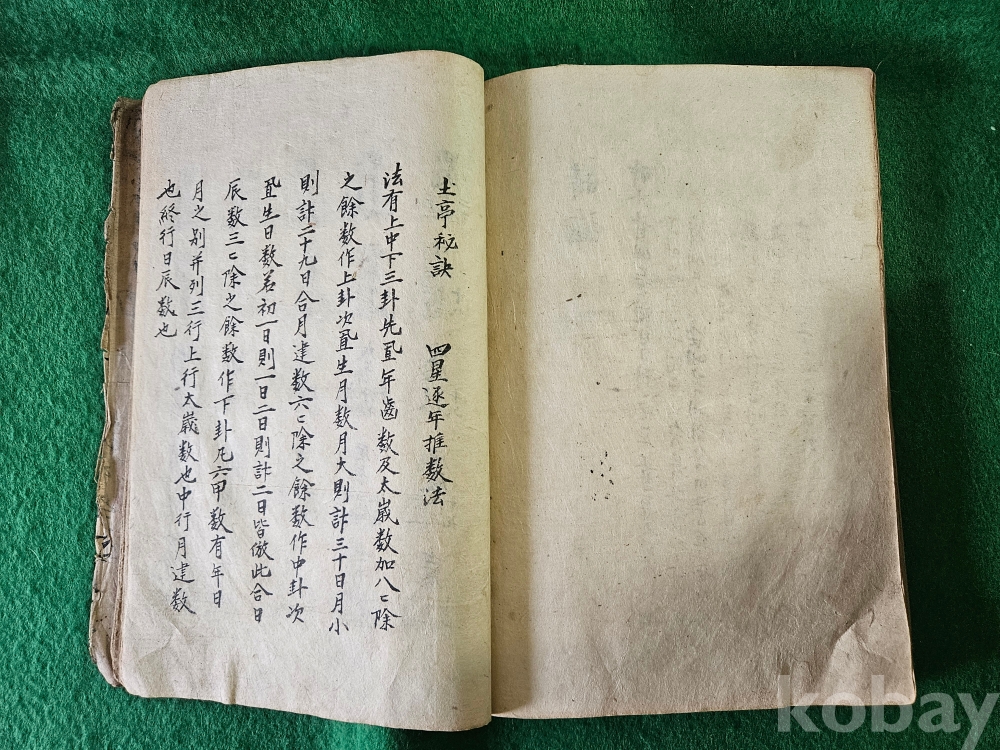 土亭秘訣 四星逐年推数法
法有上中下三卦先置年齒数及太歲数加八〻除
之餘数作上卦次置生月数月大則計三十日月小
則計二十九日合月建数六〻除之餘数作中卦次
置生日数若初一日則一日二日則計二日皆倣此合日
辰数三〻除之餘数作下卦凡六甲数有年日
月之别并列三行上行太歲数也中行月建数
也終行日辰数也
kobay